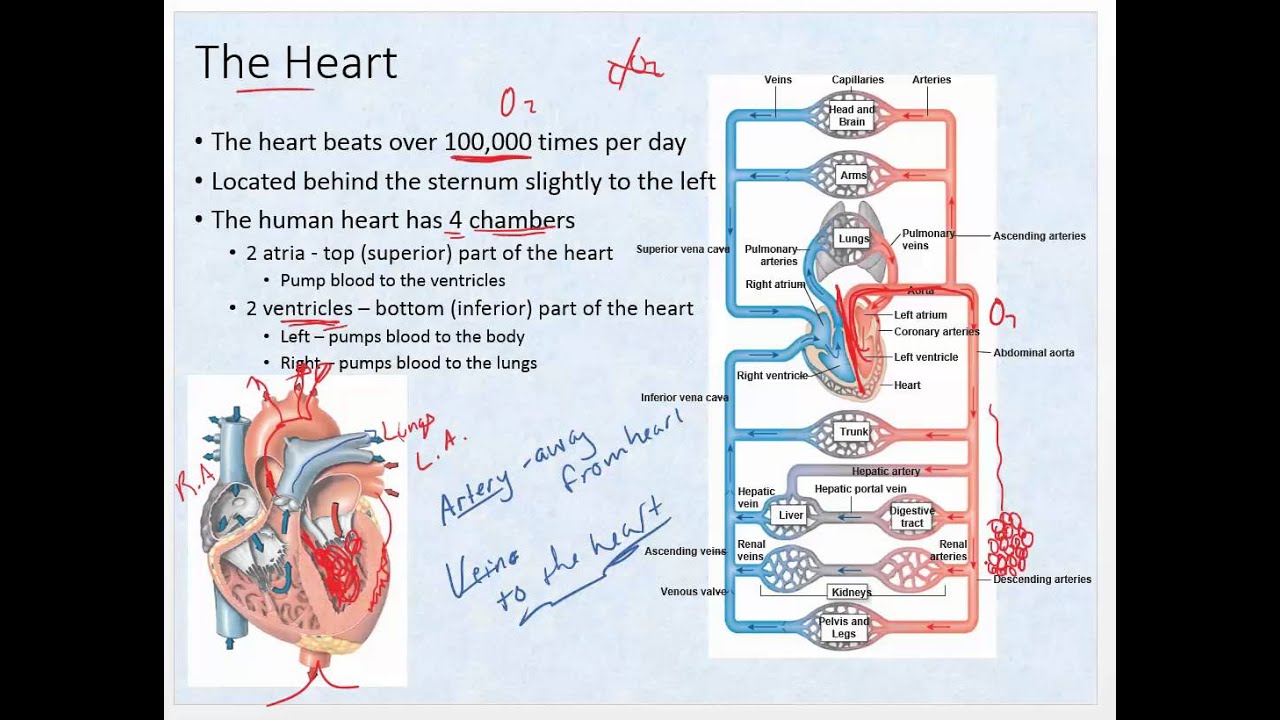 The Heart
O2
• The heart beats over 100,000 times per day
• Located behind the sternum slightly to the left
• The human heart has 4 chambers
• 2 atria - top (superior) part of the heart
• Pump blood to the ventricles
• 2 ventricles – bottom (inferior) part of the heart
• Left – pumps blood to the body
• Right – pumps blood to the lungs
Lungs
L.A.
R.A
Artery - away
from heart
Veins
to the heart
Veins
Capillaries
Arteries
Head and
Brain
Arms
Lungs
Pulmonary
veins
Ascending arteries
Superior vena cava
Pulmonary
arteries
Right atrium
Aorta
O2
Left atrium
Coronary arteries
Left ventricle
Abdominal aorta
Right ventricle
Heart
Inferior vena cava
Trunk
Hepatic artery
Hepatic
vein
Hepatic portal vein
Liver
Digestive
tract
Ascending veins
Renal
veins
Renal
arteries
Descending arteries
Venous valve
Kidneys
Pelvis and
Legs